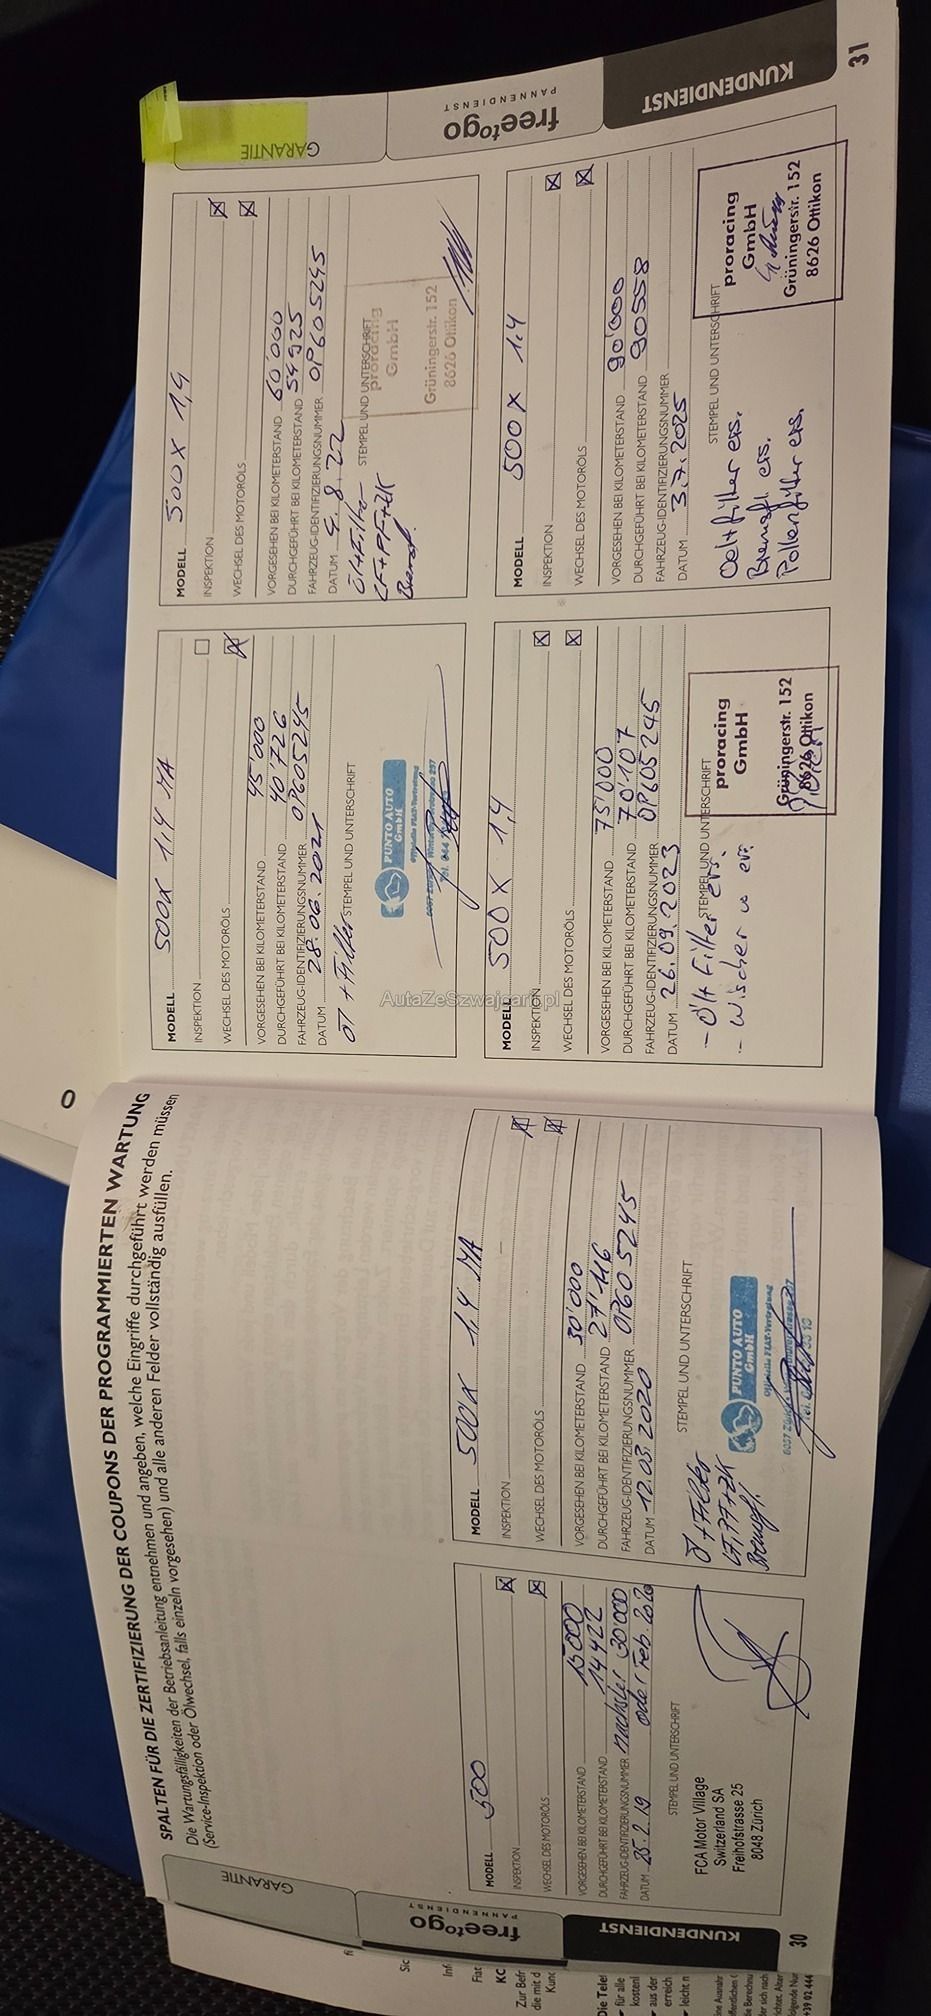 SPALTEN FÜR DIE ZERTIFIZIERUNG DER COUPONS DER PROGRAMMIERTEN WARTUNG
Die Wartungsfälligkeiten der Betriebsanleitung entnehmen und angeben, welche Eingriffe durchgeführt werden müssen
(Service-Inspektion oder Ölwechsel, falls einzeln vorgesehen) und alle anderen Felder vollständig ausfüllen.
MODELL 500
INSPEKTION
WECHSEL DES MOTORÖLS
VORGESEHEN BEI KILOMETERSTAND 15000
DURCHGEFÜHRT BEI KILOMETERSTAND 14422
FAHRZEUG-IDENTIFIZIERUNGSNUMMER nächster 30'000
DATUM 25.2.19 oder Feb. 2020
STEMPEL UND UNTERSCHRIFT
FCA Motor Village
Switzerland SA
Freihofstrasse 25
8048 Zürich
MODELL 500X 1,4 MA
INSPEKTION
WECHSEL DES MOTORÖLS
VORGESEHEN BEI KILOMETERSTAND 30'000
DURCHGEFÜHRT BEI KILOMETERSTAND 27'116
FAHRZEUG-IDENTIFIZIERUNGSNUMMER 0P605245
DATUM 12.03.2020
STEMPEL UND UNTERSCHRIFT
Ö + Filter
LF, PF + ZK
Bremsfl.
PUNTO AUTO
GmbH
Offizielle FIAT-Vertretung
GARANTIE
freetogo
PANNENDIENST
KUNDENDIENST
30
MODELL 500X 1,4 MA
INSPEKTION
WECHSEL DES MOTORÖLS
VORGESEHEN BEI KILOMETERSTAND 45'000
DURCHGEFÜHRT BEI KILOMETERSTAND 40'726
FAHRZEUG-IDENTIFIZIERUNGSNUMMER 0P605245
DATUM 28.06.2021
STEMPEL UND UNTERSCHRIFT
Öl + Filter
PUNTO AUTO
GmbH
Offizielle FIAT-Vertretung
MODELL 500X 1,4
INSPEKTION
WECHSEL DES MOTORÖLS
VORGESEHEN BEI KILOMETERSTAND 60'000
DURCHGEFÜHRT BEI KILOMETERSTAND 54925
FAHRZEUG-IDENTIFIZIERUNGSNUMMER 0P605245
DATUM 4.8.22
STEMPEL UND UNTERSCHRIFT
Öl+Filter
LF+PF+ZK
proracing
GmbH
Grüningerstr. 152
8626 Ottikon
MODELL 500X 1,4
INSPEKTION
WECHSEL DES MOTORÖLS
VORGESEHEN BEI KILOMETERSTAND 75'000
DURCHGEFÜHRT BEI KILOMETERSTAND 70'107
FAHRZEUG-IDENTIFIZIERUNGSNUMMER 0P605245
DATUM 26.09.2023
STEMPEL UND UNTERSCHRIFT
- Öl+Filter ers.
- Wischer
proracing
GmbH
Grüningerstr. 152
8626 Ottikon
MODELL 500X 1.4
INSPEKTION
WECHSEL DES MOTORÖLS
VORGESEHEN BEI KILOMETERSTAND 90'000
DURCHGEFÜHRT BEI KILOMETERSTAND 90558
FAHRZEUG-IDENTIFIZIERUNGSNUMMER
DATUM 3.7.2025
STEMPEL UND UNTERSCHRIFT
Oel+filter ers.
Bremsfl. ers.
Pollenfilter ers
proracing
GmbH
Grüningerstr. 152
8626 Ottikon
GARANTIE
freetogo
PANNENDIENST
KUNDENDIENST
31
AutaZeSzwajcarii.pl
0